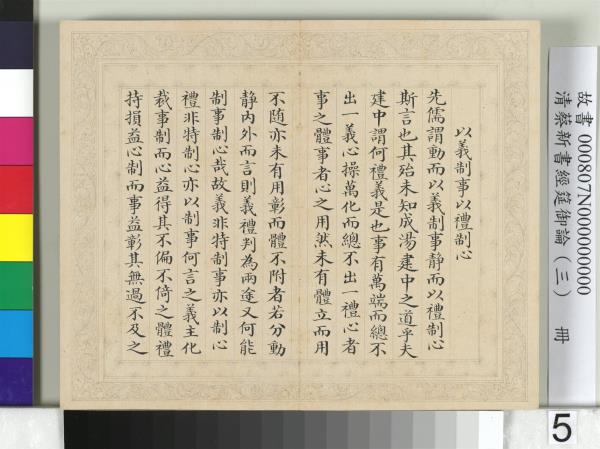 以義制事以禮制心
先儒謂動而以義制事靜而以禮制心
斯言也其殆未知成湯建中之道乎夫
建中謂何禮義是也事有萬端而總不
出一義心操萬化而總不出一禮心者
事之體事者心之用然未有體立而用
不随亦未有用彰而體不附者若分動
靜內外而言則義禮判為兩途又何能
制事制心哉故義非特制事亦以制心
禮非特制心亦以制事何言之義主化
裁事制而心益得其不偏不倚之體禮
持損益心制而事益彰其無過不及之
故書 000807N000000000
清蔡新書經筵御論（三） 冊
5